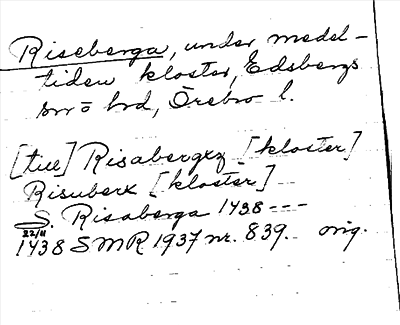 Riseberga, under medel-
tiden kloster, Edsbergs
sn o hd, Örebro l.
[till] Risabergx [kloster]
Risuberx [kloster]
S. Risaberga 1438 ---
22/11
1438 SMR 1937 nr. 839. orig.